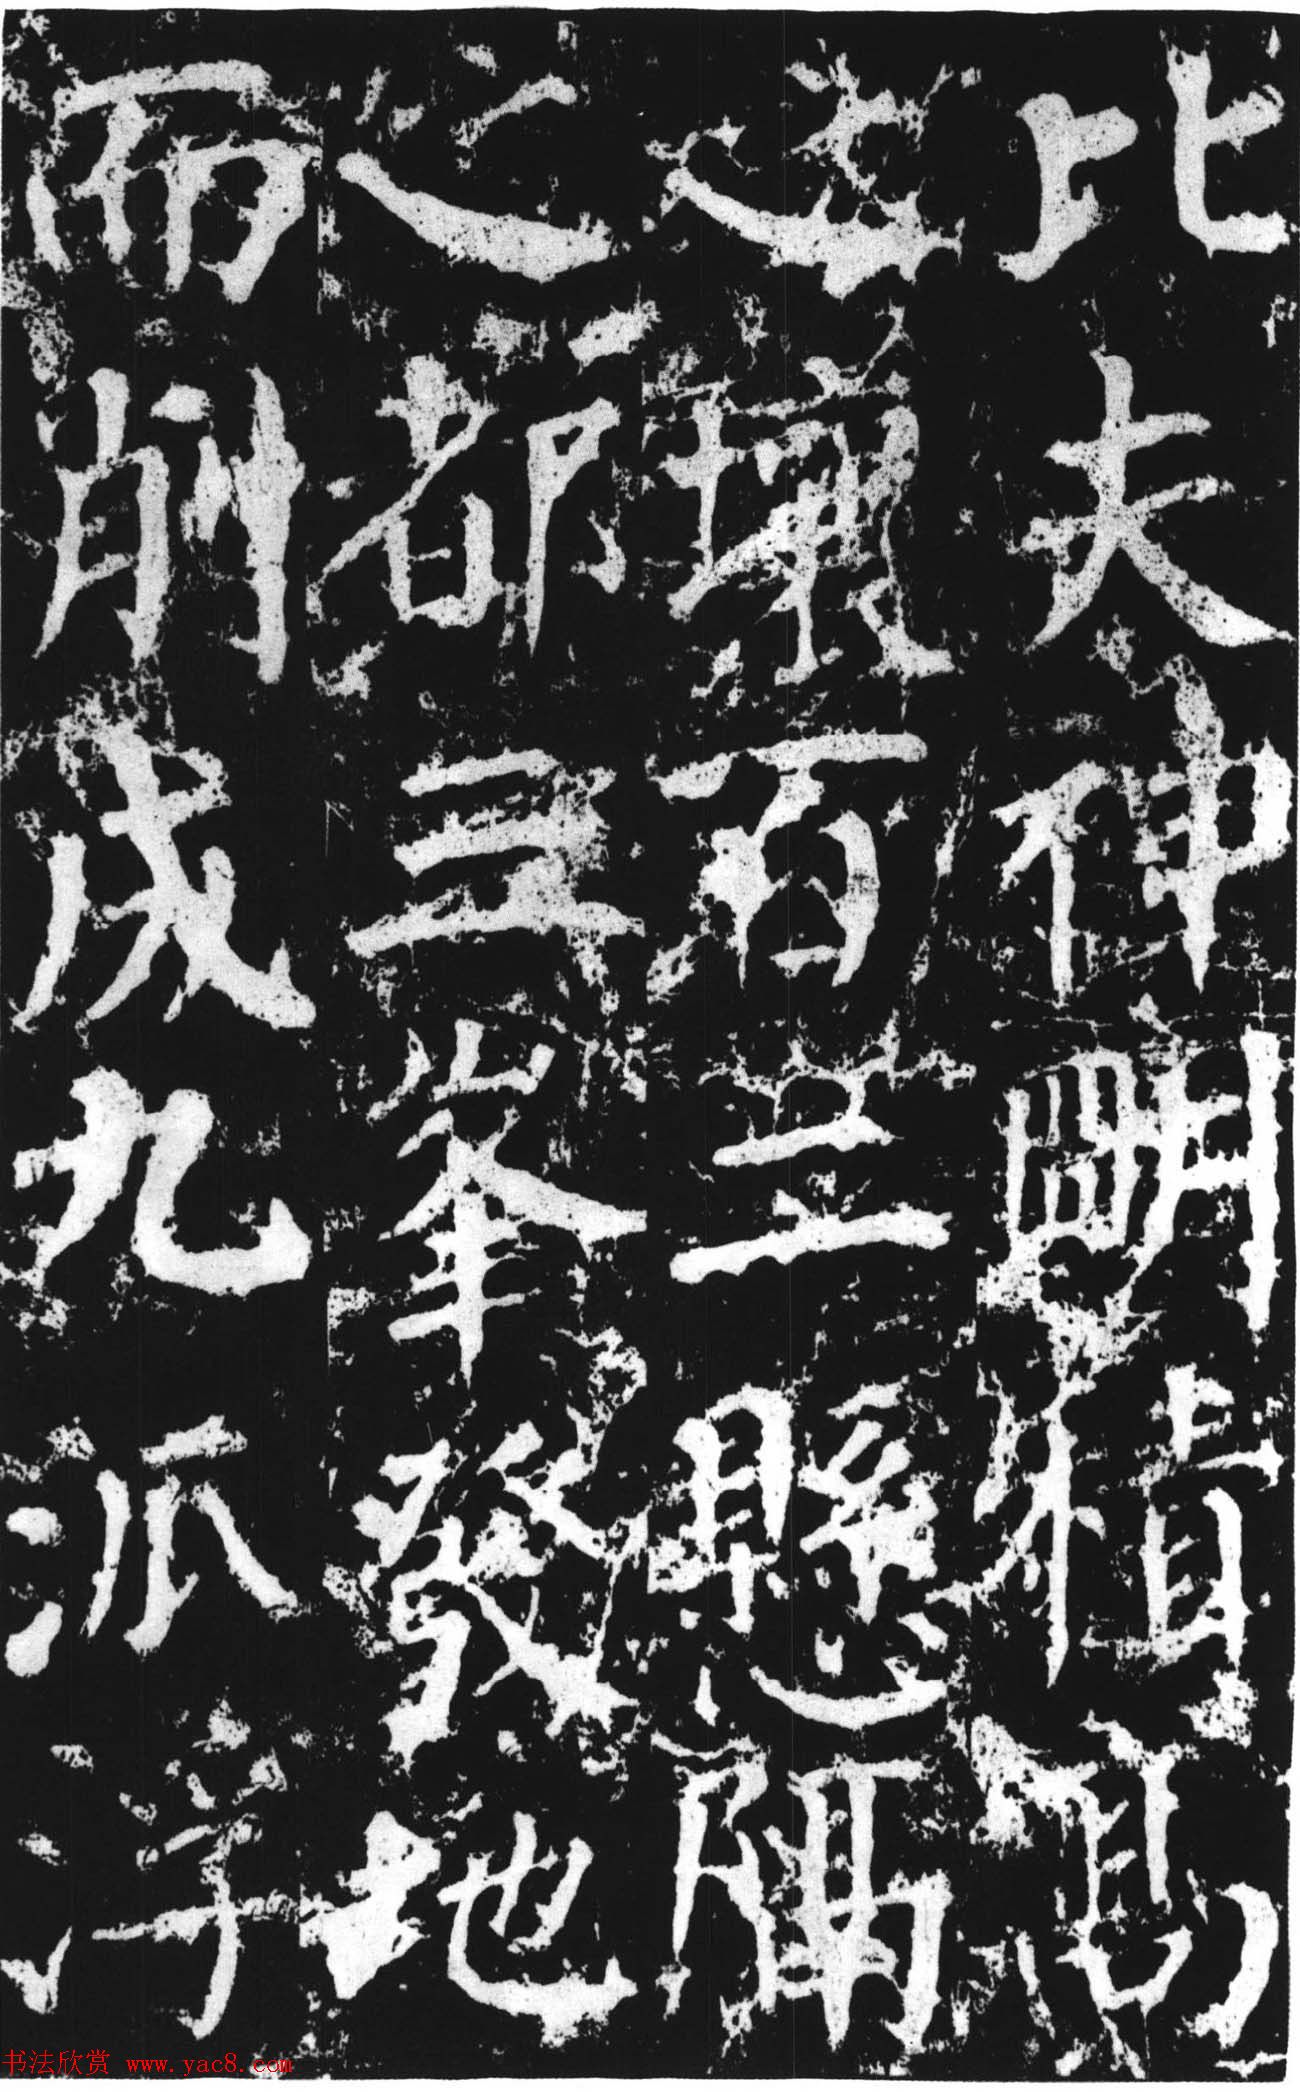 比夫明
壤百二懸隔
之都三峯發地
而削成九派浮
书法欣赏 www.yac8.com